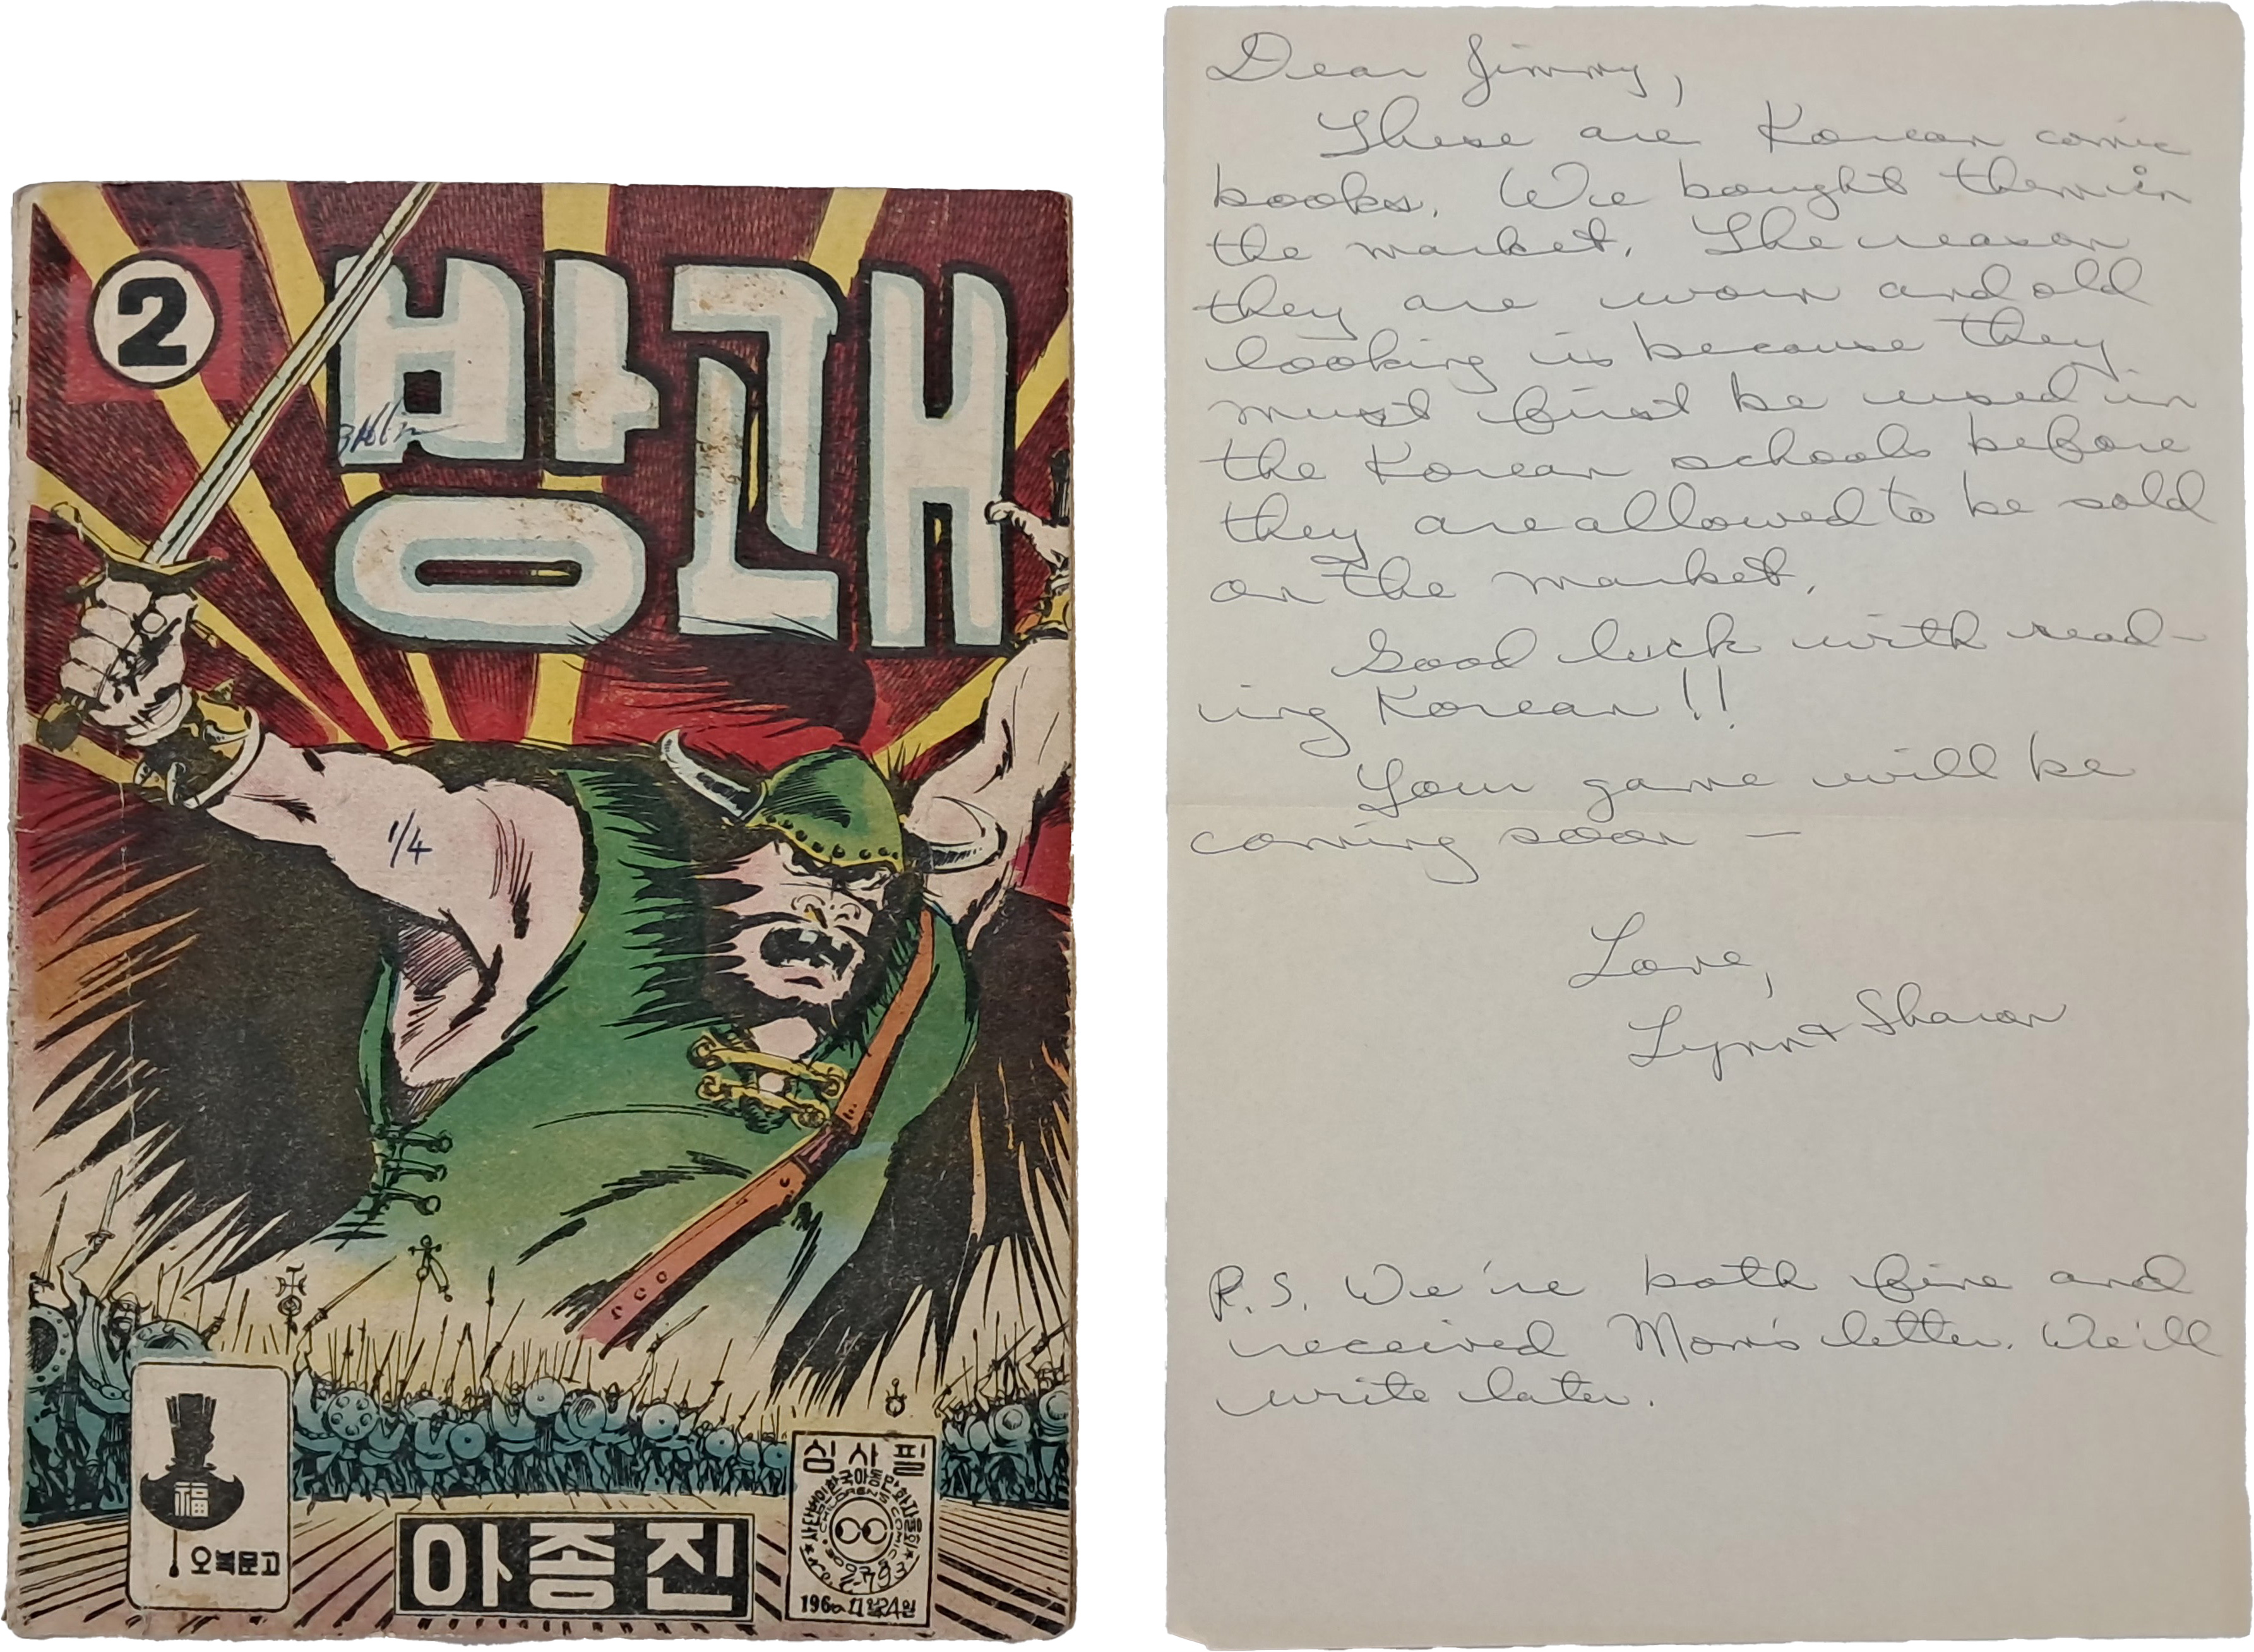 2
방괘
1/4
福
오복문고
아종진
심사필
사단법인한국아동만화자율회
CHILDREN'S COMICS CODE
Dear Jimmy,
These are Korean comic
books. We bought them in
the market. The reason
they are worn and old
looking is because they
must first be used in
the Korean schools before
they are allowed to be sold
on the market.
Good luck with read-
ing Korean!!
Your game will be
coming soon —
Love,
Lynn & Sharon
P.S. We're both fine and
received Mom's letter. We'll
write later.